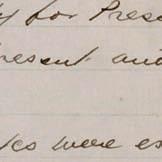 y for Prese
resent and
es were es